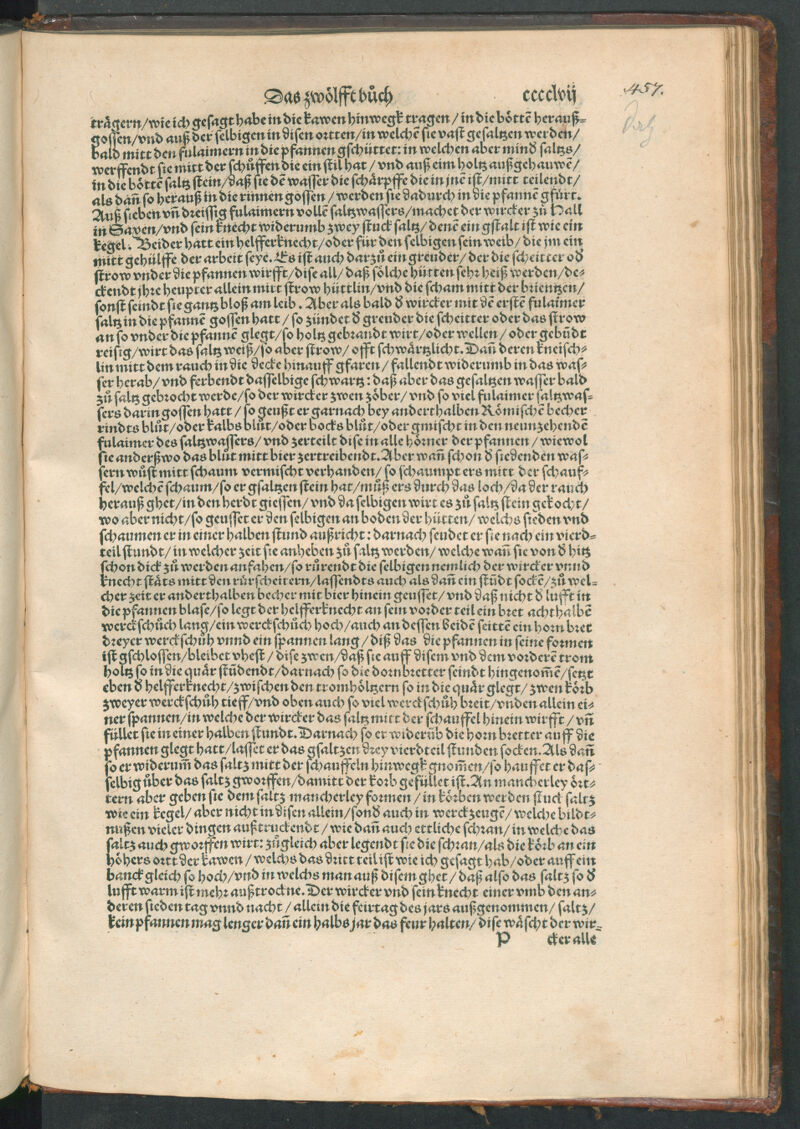 Das zwölfft bůch ccccлvij 457.
trägern/wie ich gesagt habe in die kawen hinwegk tragen/in die böttē herauß⸗
gossen/vnd auß der selbigen in disen ortten/in welchē sie vast gesaltzen werden/
bald mitt den fulaimern in die pfannen gschüttet: in welchen aber mind saltzs/
werffendt sie mitt der schůffen die ein stil hat/vnd auß eim holtz außgehauwē/
in die böttē saltz stein/daß sie dē wasser die schärpffe die in jnē ist/mitt teilendt/
als dañ so herauß in die rinnen gossen/werden sie dadurch in die pfannē gfürt.
Auß sieben vñ dreissig fulaimern vollē saltzwassers/machet der wircker zů Hall
in Saxen/vnd sein knecht widerumb zwey stuck saltz/denē ein gstalt ist wie ein
kegel. Beider hatt ein helfferknecht/oder für den selbigen sein weib/die jm ein
mitt gehülffe der arbeit seye. Es ist auch darzů ein greuder/der die scheitter od
strow vnder die pfannen wirfft/dise all/daß sölche hütten sehr heiß werden/de⸗
ckendt jhre heupter allein mitt strow hüttlin/vnd die scham mitt der brientzen/
sonst seindt sie gantz bloß am leib. Aber als bald d wircker mit dē erstē fulaimer
saltz in die pfannē gossen hatt/so zündet d greuder die scheitter oder das strow
an so vnder die pfannē glegt/so holtz gebrandt wirt/oder wellen/oder gebūdt
reisig/wirt das saltz weiß/so aber strow/offt schwärtzlicht. Dañ deren kneisch⸗
lin mitt dem rauch in die decke hinauff gfaren/fallendt widerumb in das was⸗
ser herab/vnd ferbendt dasselbige schwartz: daß aber das gesaltzen wasser bald
zů saltz gebrocht werde/so der wircker zwen zöber/vnd so viel fulaimer saltzwas⸗
sers darin gossen hatt/so geußt er garnach bey anderthalben Römischē becher
rindts blůt/oder kalbs blůt/oder bocks blůt/oder gmischt in den neunzehendē
fulaimer des saltzwassers/vnd zerteilt dise in alle hörner der pfannen/wiewol
sie anderßwo das blůt mitt bier zertreibendt. Aber wañ schon d siedenden was⸗
sern wůst mitt schaum vermischt verhanden/so schaumpt ers mitt der schauf⸗
fel/welchē schaum/so er gsaltzen stein hat/můß ers durch das loch/da der rauch
herauß ghet/in den herdt giessen/vnd da selbigen wirt es zů saltz stein gekocht/
wo aber nicht/so geusset er den selbigen an boden der hütten/welchs sieden vnd
schaumen er in einer halben stund außricht: darnach seudet er sie nach ein vierd⸗
teil stundt/in welcher zeit sie anheben zů saltz werden/welche wañ sie von d hitz
schon dick zů werden anfahen/so rürendt die selbigen nemlich der wircker vnnd
knecht stäts mitt den rürscheitern/lassendts auch als dañ ein stūdt sockē/zů wel⸗
cher zeit er anderthalben becher mit bier hinein geusset/vnd daß nicht d lufft in
die pfannen blase/so legt der helfferknecht an sein vorder teil ein bret acht halbē
werckschůch lang/ein werckschůch hoch/auch an dessen beidē seittē ein horn bret
dreyer werckschůh vnnd ein spannen lang/diß das die pfannen in seine formen
ist gschlossen/bleibet vhest/dise zwen/daß sie auff disem vnd dem vorderē trom
holtz so in die quär stūdendt/darnach so die dornbretter seindt hingenom̄ē/setzt
eben d helfferknecht/zwischen den tromhöltzern so in die quär glegt/zwen körb
zweyer werckschůh tieff/vnd oben auch so viel werckschůh breit/vnden allein ei⸗
ner spannen/in welche der wircker das saltz mitt der schauffel hinein wirfft/vñ
füllet sie in einer halben stundt. Darnach so er widerūb die horn bretter auff die
pfannen glegt hatt/lasset er das gsaltzen drey vierdteil stunden socken. Als dañ
so er widerum̄ das saltz mitt der schauffeln hinwegk gnom̄en/so hauffet er das⸗
selbig über das saltz gworffen/damitt der korb gefüllet ist. An mancherley ört⸗
tern aber geben sie dem saltz mancherley formen/in körben werden stuck saltz
wie ein kegel/aber nicht in disen allein/sond auch in werckzeugē/welche bildt⸗
nußen vieler dingen außtruckendt/wie dañ auch ettliche schran/in welche das
saltz auch gworffen wirt: zůgleich aber legendt sie die schran/als die körb an ein
höhers ortt der kawen/welchs das dritt teil ist wie ich gesagt hab/oder auff ein
banck gleich so hoch/vnd in welchs man auß disem ghet/daß also das saltz so d
lufft warm ist mehr außtrockne. Der wircker vnd sein knecht einer vmb den an⸗
deren sieden tag vnnd nacht/allein die feirtag des jars außgenommen/saltz/
kein pfannen mag lenger dañ ein halbs jar das feur halten/dise wäscht der wir⸗
P cker alle